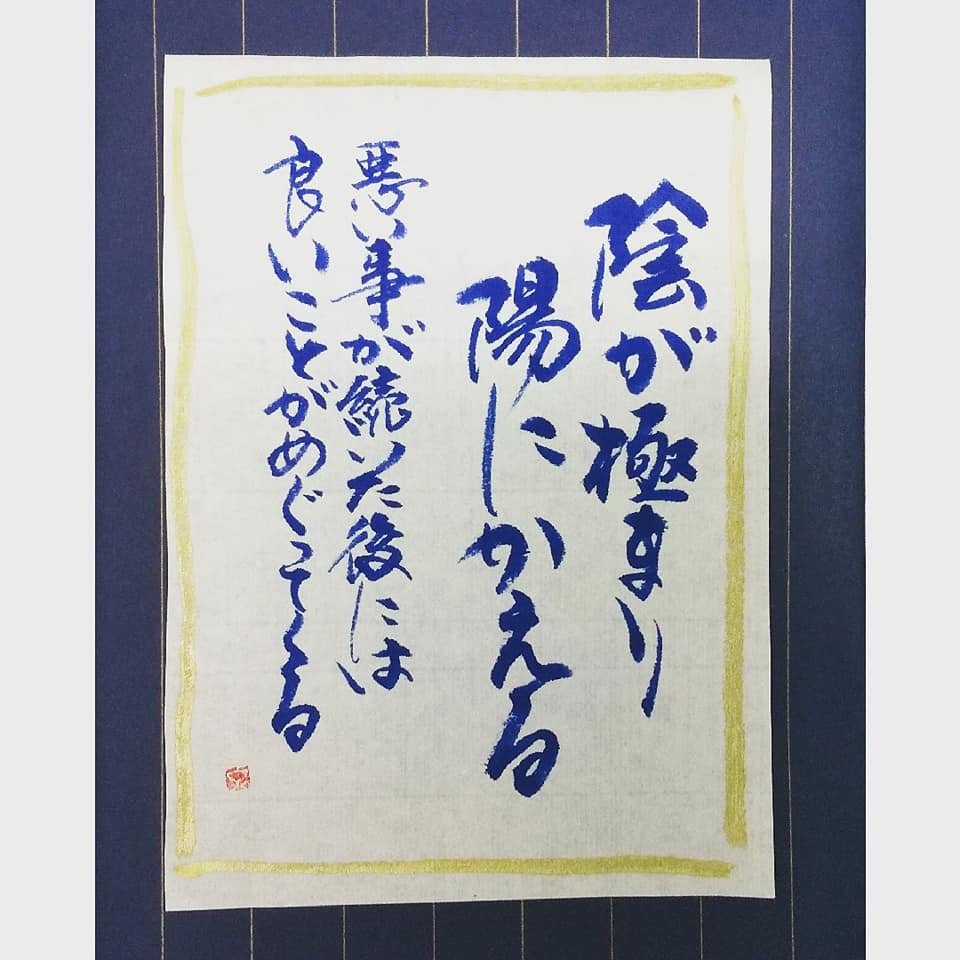 陰が極まり
陽にかえる
悪い事が続いた後には
良いことがめぐってくる